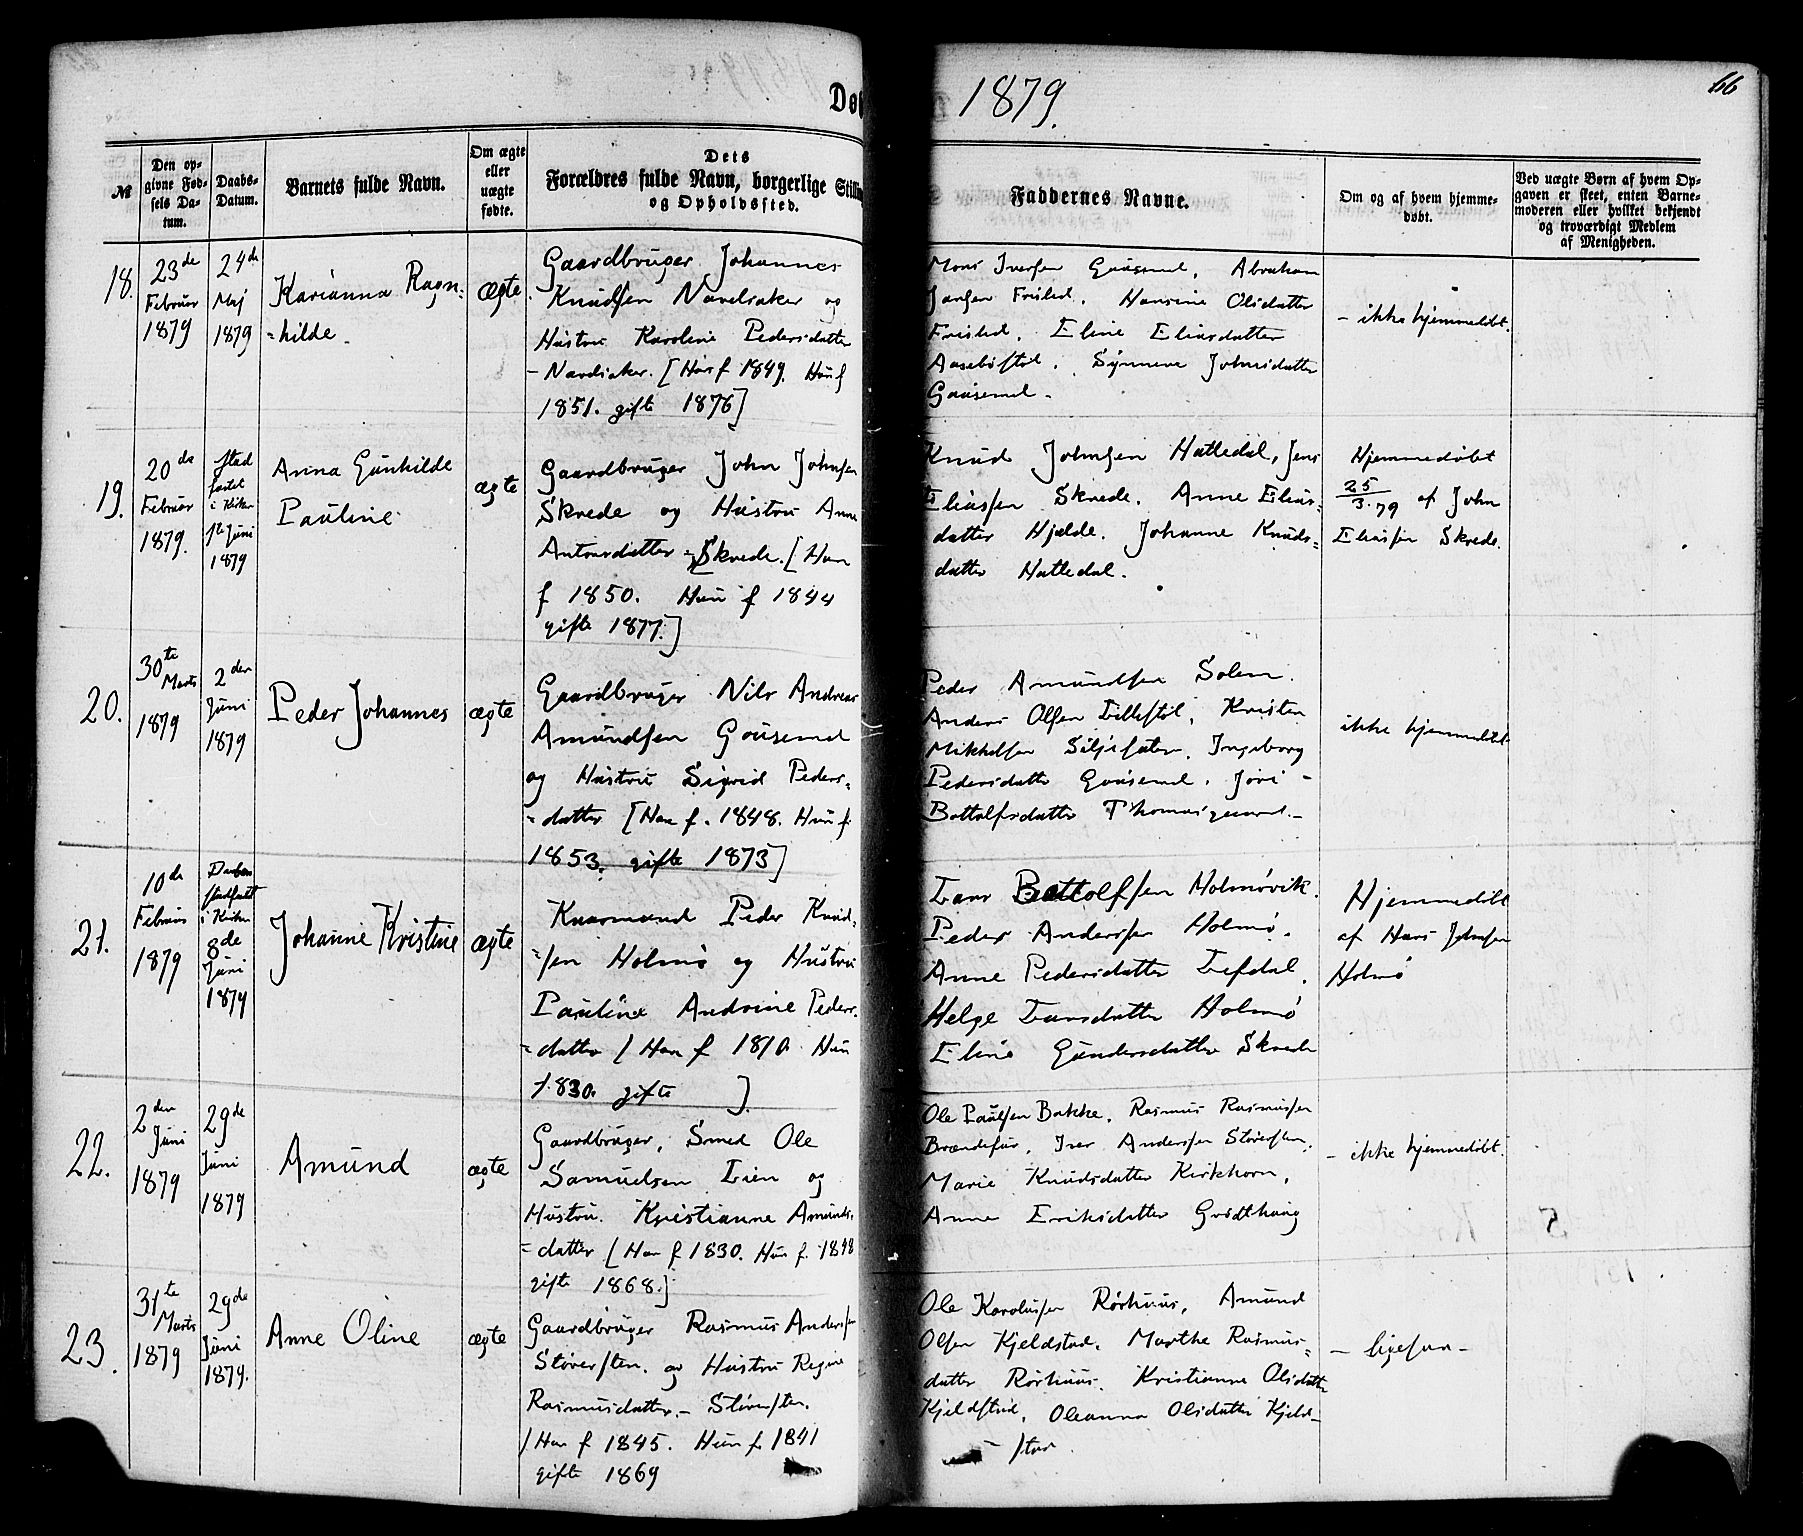 1879.
66
№
Den op-
givne Fød-
sels Da-
tum.
Daabs-
Datum.
Barnets fulde Navn.
Om ægte
eller
uægte
fødte.
Dets
Forældres fulde Navn, borgerlige
og Opholdssted.
Faddernes Navne.
Om og af hvem hjemme-
døbt.
Ved uægte Børn af hvem Op-
gaven er skeet, enten Barne-
moderen eller hvilket bekjendt
og troværdigt Medlem
af Menigheden.
18.
23de
Februar
1879
24de
Maj
1879
Karianna Ragn-
-hilde.
ægte
Gaardbruger Johannes
Knudsen Navelsaker og
Hustru Karoline Pedersdatter
- [Han f 1849. Hun f
1851. gifte 1876]
Mons Iversen Abraham
Frislid. Hansine Olsdatter
Frislid. Eline Eliasdatter
Synneve Johnsdatter
- ikke hjemmedøbt.
19.
20de
Februar
1879.
Stad
fæstet
i Kirken
1ste Juni
1879
Anna Gunhilde
Pauline
ægte
Gaardbruger John Johnsen
Skrede og Hustru Anne
Antonsdatter Skrede. [Han
f 1850. Hun f 1844
gifte 1877.]
Knud Johnsen Hattedal, Jens
Eliassen Skrede. Anne Elias-
datter Hjelde. Johanne Knuds-
datter Hattedal.
Hjemmedøbt
25/3.79 af John
Eliassen Skrede.
20.
30te
Marts
1879
2den
Juni
1879
Peder Johannes
ægte
Gaardbruger Nils Andreas
Amundsen Gousemel
og Hustru Sigrid Peders-
-datter [Han f. 1848. Hun f.
1853. gifte 1873]
Peder Amundsen Solem.
Anders Olsen Lillestøl, Kristen
Mikkelsen Siljesæter, Ingeborg
Pedersdatter Gousemel. -
Bottolfsdatter Thomasgaard.-
ikke hjemmedøbt
21.
10de
Februar
1879
Daaben
stadfæstet
i Kirken
8de
Juni
1879
Johanne Kristine
ægte
Kaarmand Peder Knud-
-sen Holmø og Hustru
Pauline Andrine Peders-
-datter [Han f 1810. Hun
1830. gifte ].
Lars Bottolfsen Holmøvik.
Peder Andersen Holmø.
Anne Pedersdatter Lefdal.
Helge Larsdatter Holmø
Eline Gundersdatter Skrede
Hjemmedøbt
af Hans Johnsen
Holmø
22.
2den
Juni
1879
29de
Juni
1879
Amund
ægte
Gaardbruger, Smed Ole
Samuelsen Lien og
Hustru. Kristianne Amunds-
-datter [Han f 1830. Hun f. 1848
gifte 1868.]
Ole Paulsen Bakke. Rasmus Rasmussen
Iver Andersen Støversten.
Marie Knudsdatter Kirkhorn,
Anne Eriksdatter Gridthaug
- ikke hjemmedøbt.
23.
31te
Marts
1879
29de
Juni
1879.
Anne Oline
ægte
Gaardbruger Rasmus Andersen
Støversten. og Hustru Regine
Rasmusdatter.- Støversten.
[Han f 1845. Hun f. 1841
gifte 1869
Ole Karolussen Rørhuus, Amund
Olsen Kjeldstad. Marthe Rasmus-
datter Rørhuus. Kristianne Olsdatter
Kjeldstad, Oleanna Olsdatter Kjeld-
stad.
- ligesaa -